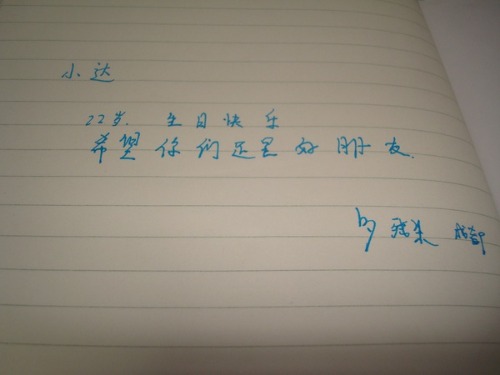 小达
22岁. 生日快乐
希望你们还是好朋友.
by 成都